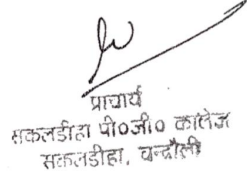 प्राचार्य
सकलडीहा पी०जी० कालेज
सकलडीहा, चन्दौली